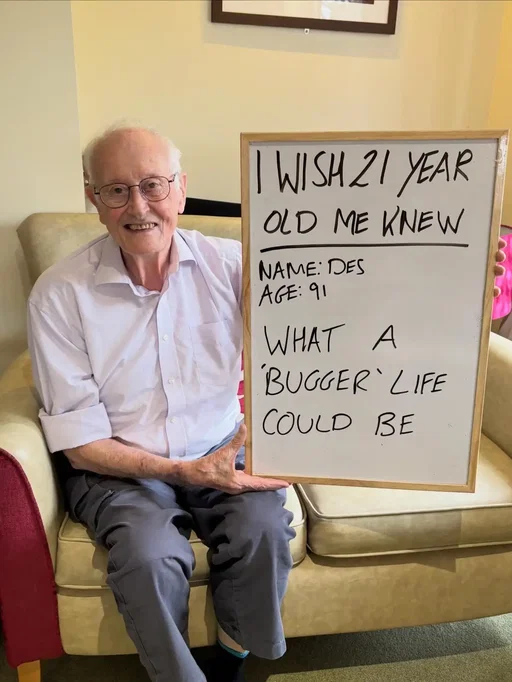 I WISH 21 YEAR
OLD ME KNEW
NAME: DES
AGE: 91
WHAT A
'BUGGER' LIFE
COULD BE